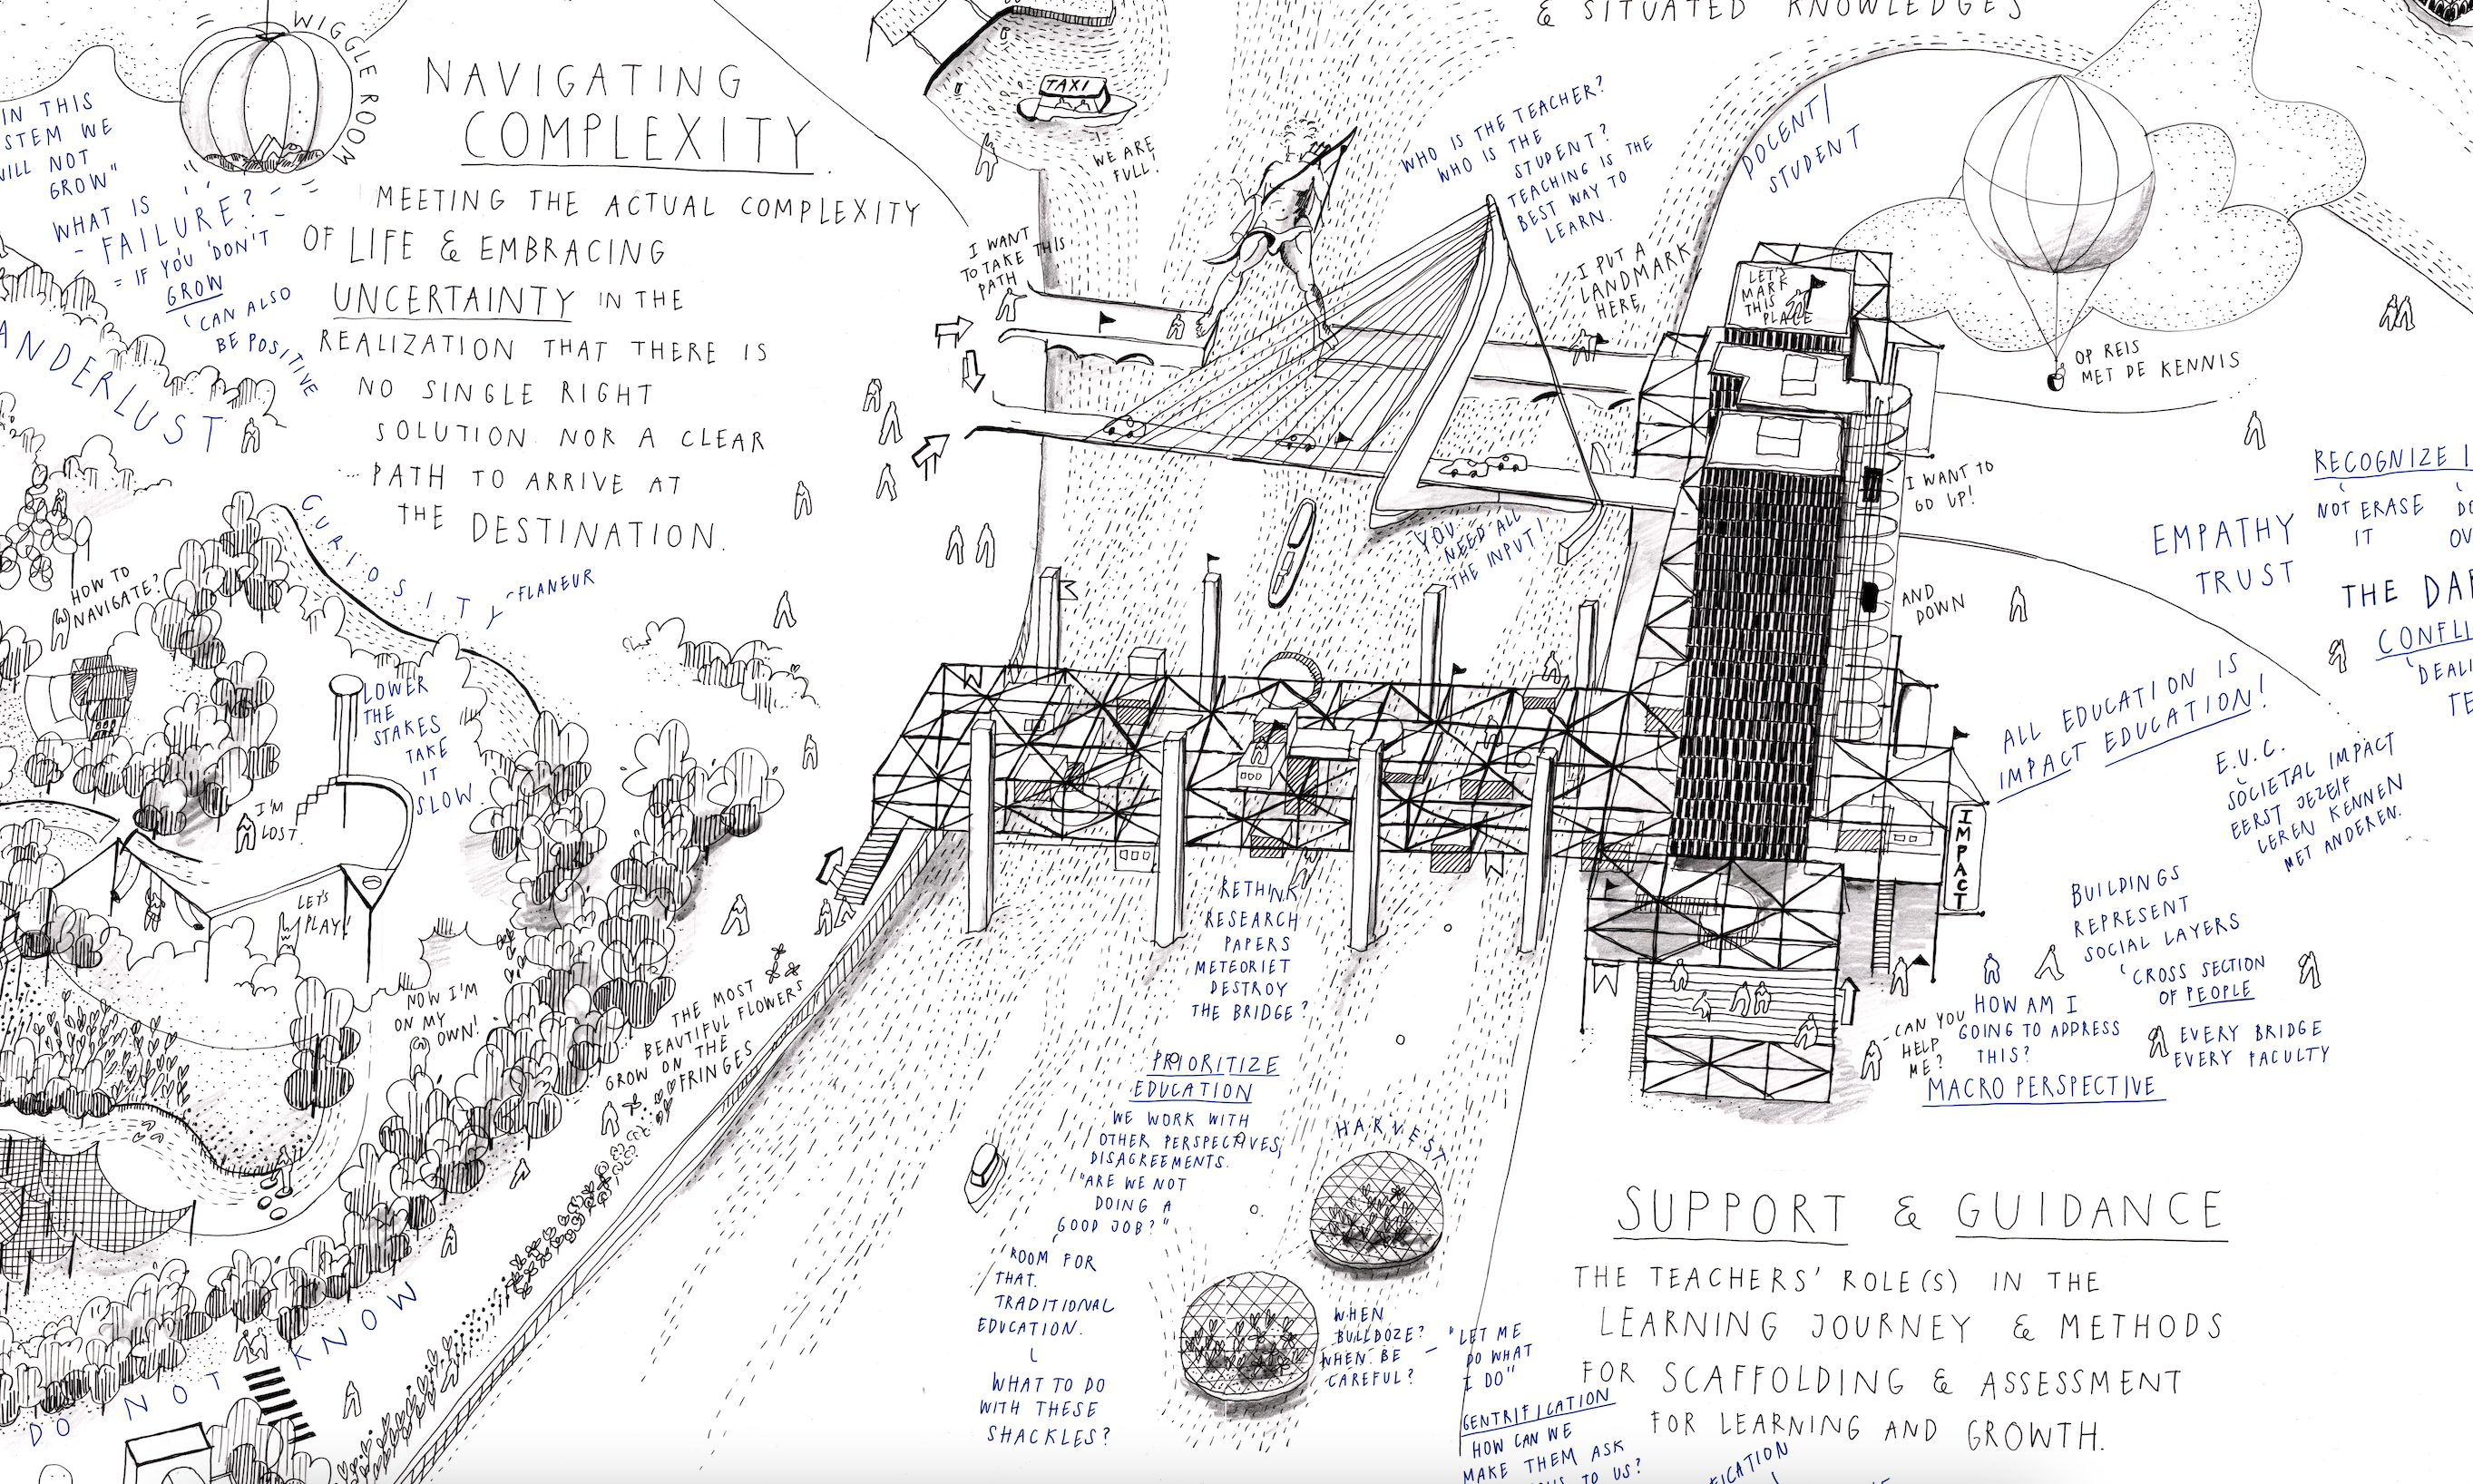 & SITUATED KNOWLEDGES
WIGGLE ROOM
NAVIGATING
COMPLEXITY.
MEETING THE ACTUAL COMPLEXITY
OF LIFE & EMBRACING
UNCERTAINTY IN THE
REALIZATION THAT THERE IS
NO SINGLE RIGHT
SOLUTION NOR A CLEAR
PATH TO ARRIVE AT
THE DESTINATION.
IN THIS
STEM WE
WILL NOT
GROW"
WHAT IS
- FAILURE? -
= IF YOU DON'T
GROW
CAN ALSO
BE POSITIVE
ANDERLUST
CURIOSITY
FLANEUR
HOW TO
NAVIGATE?
LOWER
THE
STAKES
TAKE
IT
SLOW.
I'M
LOST.
LET'S
PLAY!
NOW I'M
ON MY
OWN!
THE MOST
BEAUTIFUL FLOWERS
GROW ON THE
FRINGES
DO NOT KNOW
TAXI
WE ARE
FULL!
I WANT
TO TAKE THIS
PATH
WHO IS THE TEACHER?
WHO IS THE
STUDENT?
TEACHING IS THE
BEST WAY TO
LEARN.
DOCENT/
STUDENT
I PUT A
LANDMARK
HERE,
LET'S
MARK
THIS
PLACE
OP REIS
MET DE KENNIS
I WANT TO
GO UP!
AND
DOWN
YOU
NEED ALL
THE INPUT!
RECOGNIZE I
NOT ERASE
IT
DO
OV
EMPATHY
TRUST
THE DAR
CONFLI
DEALI
TE
ALL EDUCATION IS
IMPACT EDUCATION!
E.V.C.
SOCIETAL IMPACT
EERST JEZELF
LEREN KENNEN
MET ANDEREN.
IMPACT
BUILDINGS
REPRESENT
SOCIAL LAYERS
CROSS SECTION
OF PEOPLE
HOW AM I
GOING TO ADDRESS
THIS?
EVERY BRIDGE
EVERY FACULTY
CAN YOU
HELP
ME?
MACRO PERSPECTIVE
RETHINK
RESEARCH
PAPERS
METEORIET
DESTROY
THE BRIDGE?
PRIORITIZE
EDUCATION
WE WORK WITH
OTHER PERSPECTIVES,
DISAGREEMENTS.
"ARE WE NOT
DOING A
GOOD JOB?"
ROOM FOR
THAT.
TRADITIONAL
EDUCATION.
WHAT TO DO
WITH THESE
SHACKLES?
HARVEST
WHEN
BULLDOZE?
WHEN BE
CAREFUL?
- "LET ME
DO WHAT
I DO"
GENTRIFICATION
HOW CAN WE
MAKE THEM ASK
TO US?
SUPPORT & GUIDANCE
THE TEACHERS' ROLE(S) IN THE
LEARNING JOURNEY & METHODS
FOR SCAFFOLDING & ASSESSMENT
FOR LEARNING AND GROWTH.